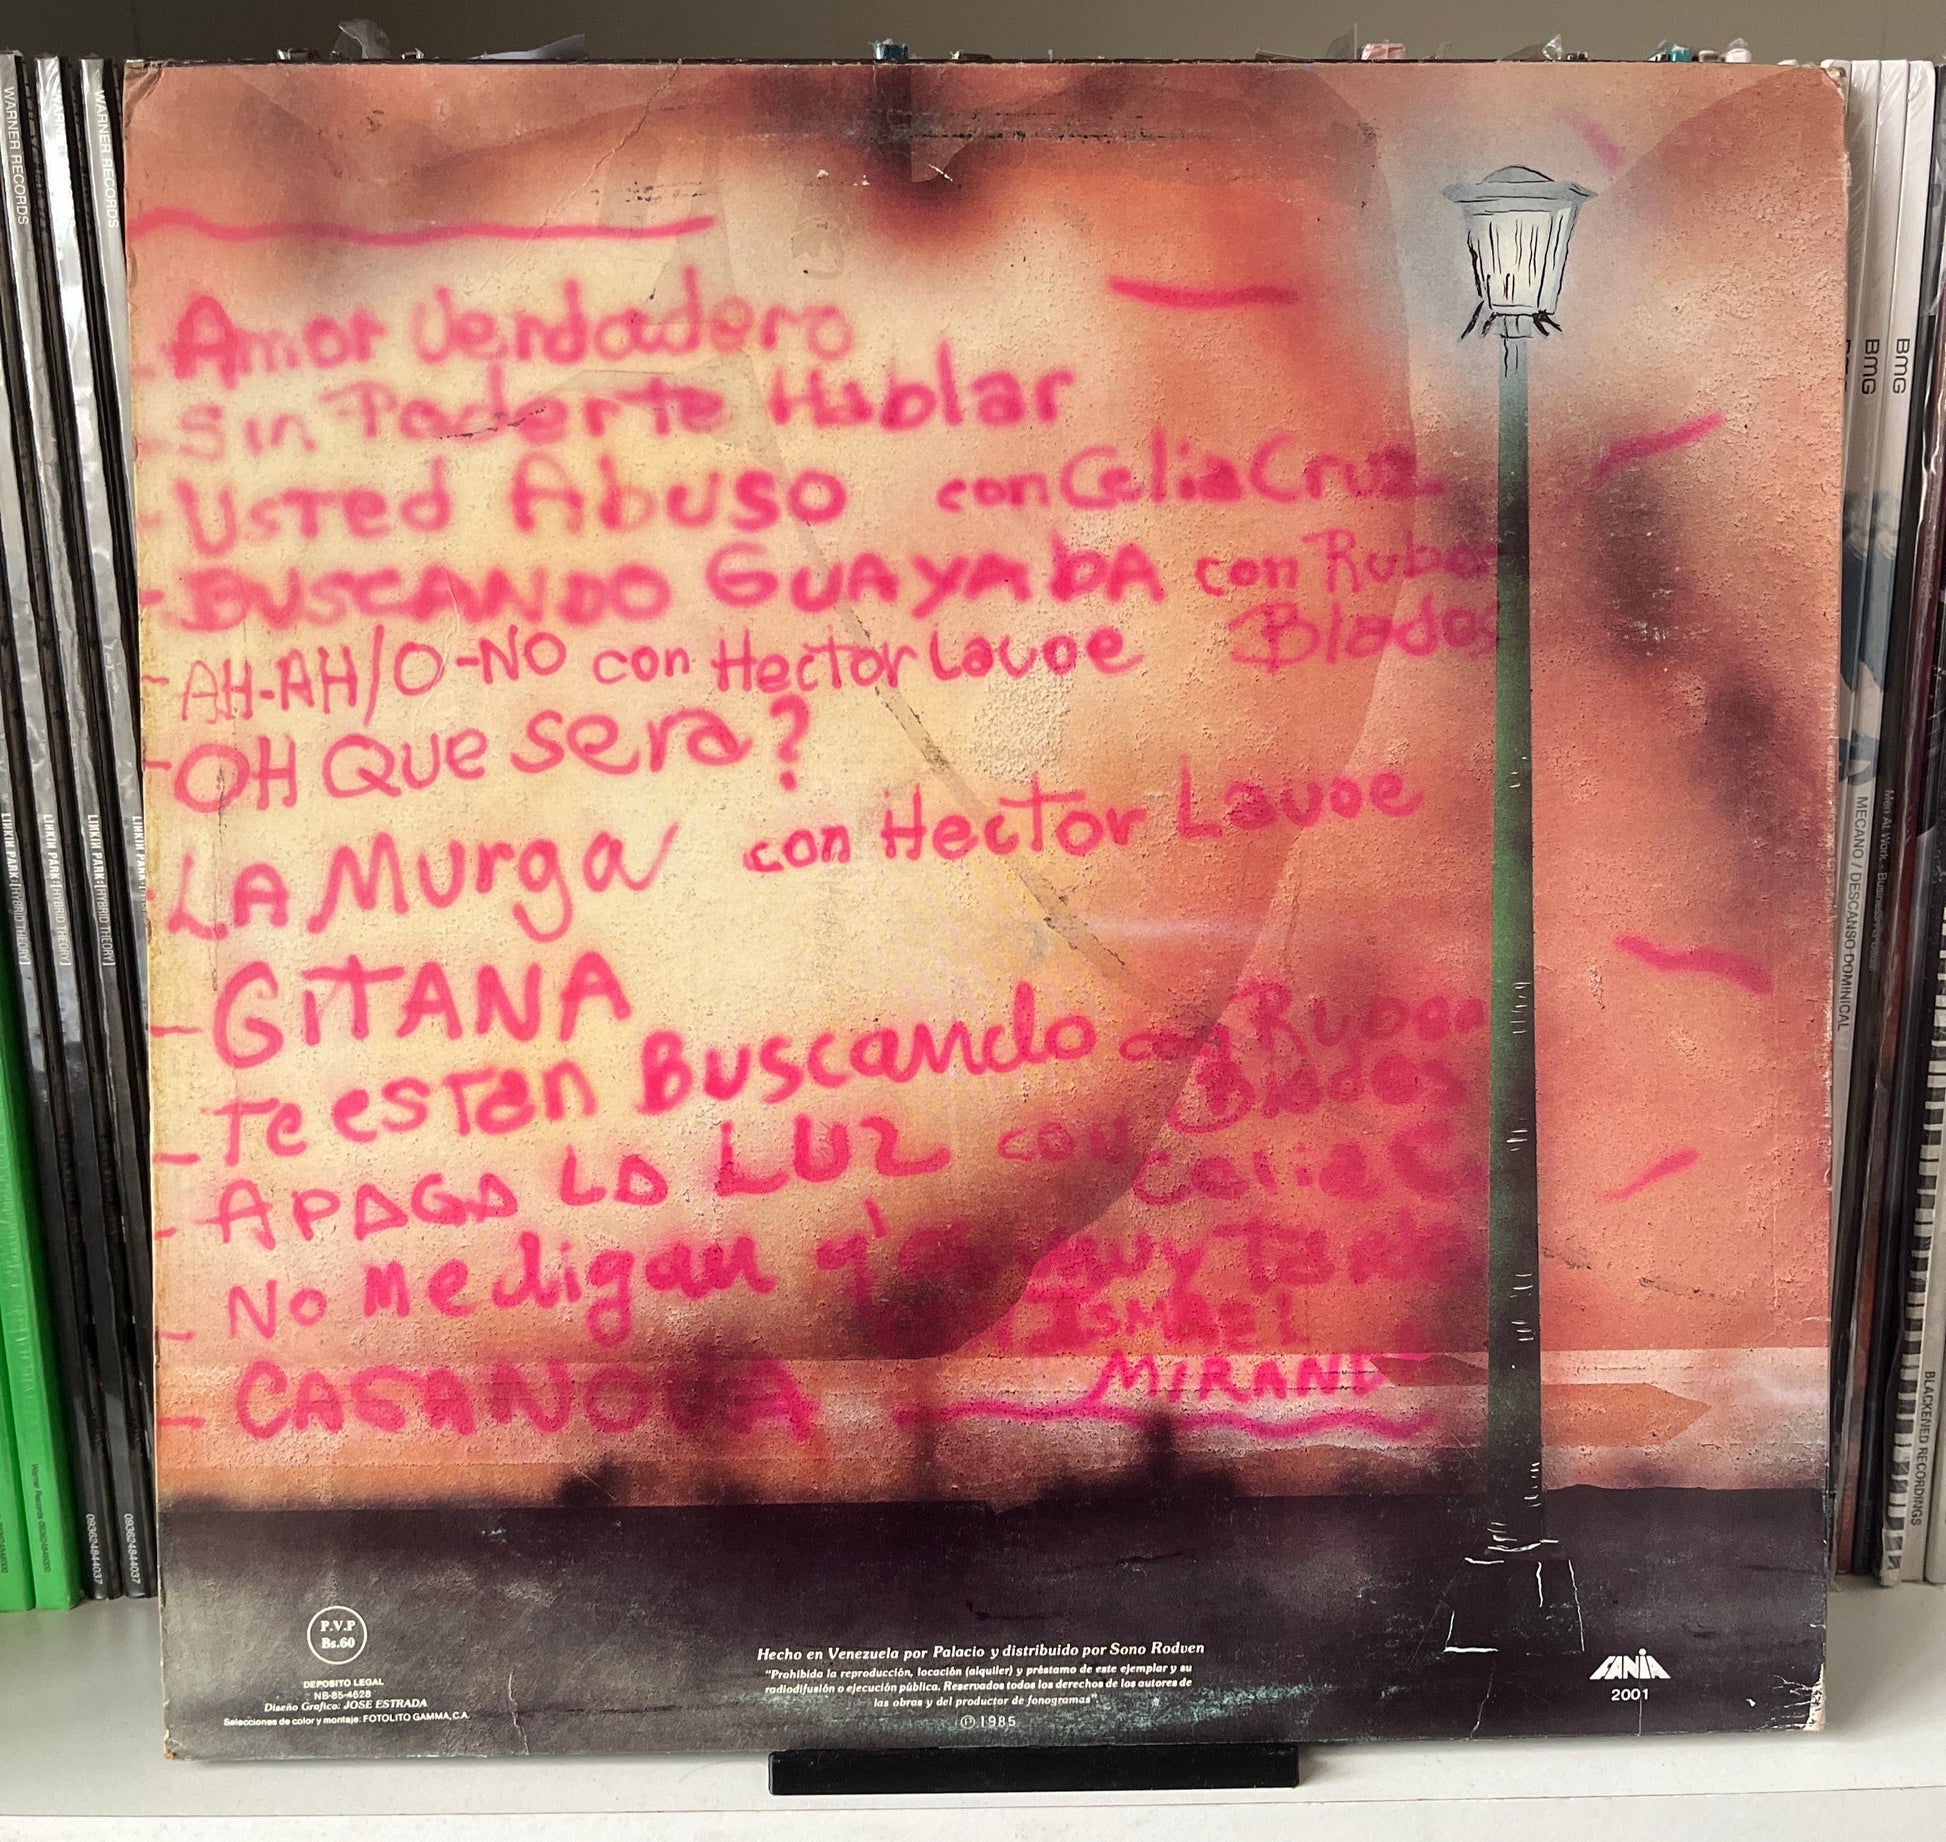 Amor Verdadero
Sin Poderte Hablar
Usted Abuso con Celia Cruz
BUSCANDO GUAYAbA con Ruben
Blades
AH-AH/O-NO con Hector Lavoe
OH QUe sera?
LA Murga con Hector Lavoe
GITANA
Te estan Buscando con Ruben
Blades
APAGA LA LUZ con Celia C.
No me digan q' es muy tarde
ISMAEL
MIRANDA
CASANOVA
P.V.P
Bs.60
DEPOSITO LEGAL
NB-85-4628
Diseño Grafico: JOSE ESTRADA
Selecciones de color y montaje: FOTOLITO GAMMA, C.A.
Hecho en Venezuela por Palacio y distribuido por Sono Rodven
"Prohibida la reproducción, locación (alquiler) y préstamo de este ejemplar y su
radiodifusión o ejecución pública. Reservados todos los derechos de los autores de
las obras y del productor de fonogramas"
Ⓟ 1985
FANIA
2001
WARNER RECORDS
WARNER RECORDS
LINKIN PARK: [HYBRID THEORY]
LINKIN PARK: [HYBRID THEORY]
LINKIN PARK: [HYBRID THEORY]
LINKIN PARK
093624844037
093624844037
BMG
BMG
MECANO / DESCANSO DOMINICAL
Men At Work - Business As Usual
BLACKENED RECORDINGS